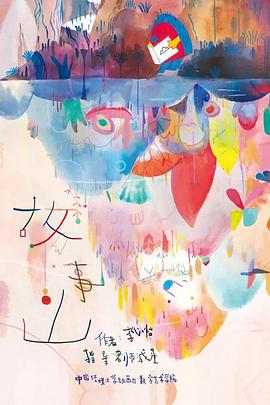 故事山
作者：李心怡
指导老师：
中国传媒大学动画与数字艺术学院